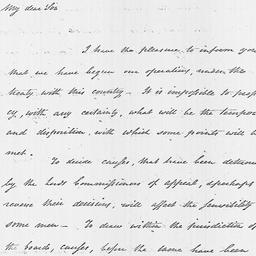 My dear Sir
I have the pleasure to inform you
that we have begun our operations, under the
treaty with this country - It is impossible to prop
cy, with any certainty, what will be the temper
and disposition, with which some points will b
met.
To decide causes, that have been determ
by the Lords Commissioners of appeal, & perhaps
reverse their decisions, will affect the sensibility
some men - To draw within the jurisdiction o
the board, causes, before the same have been